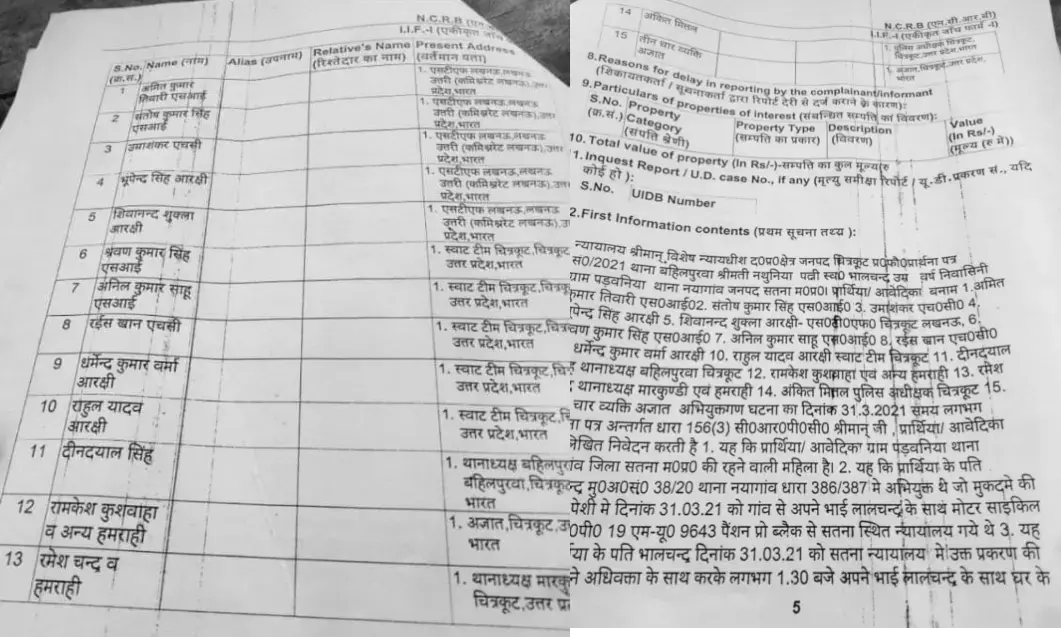 N.C.R.B (एन.
I.I.F.-I (एकीकृत जाँच
S.No. Name (नाम) Alias (उपनाम) Relative's Name Present Address
(क्र.सं.) (रिश्तेदार का नाम) (वर्तमान पता)
1 अमित कुमार तिवारी एसआई 1. एसटीएफ लखनऊ,लखनऊ उत्तरी (कमिश्नरेट लखनऊ),उत्तर प्रदेश,भारत
2 संतोष कुमार सिंह एसआई 1. एसटीएफ लखनऊ,लखनऊ उत्तरी (कमिश्नरेट लखनऊ),उत्तर प्रदेश,भारत
3 उमाशंकर एचसी 1. एसटीएफ लखनऊ,लखनऊ उत्तरी (कमिश्नरेट लखनऊ),उत्तर प्रदेश,भारत
4 भूपेन्द सिंह आरक्षी 1. एसटीएफ लखनऊ,लखनऊ उत्तरी (कमिश्नरेट लखनऊ), प्रदेश,भारत
5 शिवानन्द शुक्ला आरक्षी 1. एसटीएफ लखनऊ,लखनऊ उत्तरी (कमिश्नरेट लखनऊ), प्रदेश,भारत
6 श्रवण कुमार सिंह एसआई 1. स्वाट टीम चित्रकूट,चित्रकूट उत्तर प्रदेश,भारत
7 अनिल कुमार साहू एसआई 1. स्वाट टीम चित्रकूट,चित्रकू उत्तर प्रदेश,भारत
8 रईस खान एचसी 1. स्वाट टीम चित्रकूट,चित्र उत्तर प्रदेश,भारत
9 धर्मेन्द कुमार वर्मा आरक्षी 1. स्वाट टीम चित्रकूट, उत्तर प्रदेश,भारत
10 राहुल यादव आरक्षी 1. स्वाट टीम चित्रकूट, उत्तर प्रदेश,भारत
11 दीनदयाल सिंह 1. थानाध्यक्ष बहिलपुर बहिलपुरवा,चित्रकूट भारत
12 रामकेश कुशवाहा व अन्य हमराही 1. अज्ञात,चित्रकूट, भारत
13 रमेश चन्द व हमराही 1. थानाध्यक्ष मारकु चित्रकूट,उत्तर प्र
N.C.R.B (एन.सी.आर.बी)
I.I.F.-I (एकीकृत जाँच फार्म -I)
14 अंकित मित्तल 1. पुलिस अधीक्षक चित्रकूट, चित्रकूट,उत्तर प्रदेश,भारत
15 तीन चार व्यक्ति अज्ञात 1. अज्ञात,चित्रकूट,उत्तर प्रदेश, भारत
8.Reasons for delay in reporting by the complainant/informant
(शिकायतकर्ता / सूचनाकर्ता द्वारा रिपोर्ट देरी से दर्ज कराने के कारण):
9.Particulars of properties of interest (संबन्धित सम्पत्ति का विवरण):
S.No. Property Property Type Description Value
(क्र.सं.) Category (सम्पत्ति का प्रकार) (विवरण) (In Rs/-)
(संपत्ति श्रेणी) (मूल्य (रु में))
10. Total value of property (In Rs/-)-सम्पत्ति का कुल मूल्य(रु
1. Inquest Report / U.D. case No., if any (मृत्यु समीक्षा रिपोर्ट / यू.डी.प्रकरण सं., यदि
कोई हो ):
S.No. UIDB Number
2.First Information contents (प्रथम सूचना तथ्य ):
न्यायालय श्रीमान् विशेष न्यायधीश द0प्र0क्षेत्र जनपद चित्रकूट प्र0फौ0प्रार्थना पत्र
सं0/2021 थाना बहिलपुरवा श्रीमती नथुनिया पत्नी स्व0 भालचन्द उम्र वर्ष निवासिनी
ग्राम पड़वनिया थाना नयागांव जनपद सतना म0प्र0। प्रार्थिया/ आवेदिका बनाम 1.अमित
कुमार तिवारी एस0आई02. संतोष कुमार सिंह एस0आई0 3. उमाशंकर एच0सी0 4.
पेन्द सिंह आरक्षी 5. शिवानन्द शुक्ला आरक्षी- एस0टी0एफ0 चित्रकूट लखनऊ, 6.
वण कुमार सिंह एस0आई0 7. अनिल कुमार साहू एस0आई0 8. रईस खान एच0सी0
धर्मेन्द कुमार वर्मा आरक्षी 10. राहुल यादव आरक्षी स्वाट टीम चित्रकूट 11. दीनदयाल
थानाध्यक्ष बहिलपुरवा चित्रकूट 12. रामकेश कुशवाहा एवं अन्य हमराही 13. रमेश
थानाध्यक्ष मारकुण्डी एवं हमराही 14. अंकित मित्तल पुलिस अधीक्षक चित्रकूट 15.
चार व्यक्ति अज्ञात अभियुक्तगण घटना का दिनांक 31.3.2021 समय लगभग
पत्र अन्तर्गत धारा 156(3) सी0आर0पी0सी0 श्रीमान् जी , प्रार्थिया/ आवेदिका
निवेदन करती है 1. यह कि प्रार्थिया/ आवेदिका ग्राम पड़वनिया थाना
गांव जिला सतना म0प्र0 की रहने वाली महिला है। 2. यह कि प्रार्थिया के पति
न्द मु0अ0सं0 38/20 थाना नयागांव धारा 386/387 मे अभियुक्त थे जो मुकदमे की
पेशी मे दिनांक 31.03.21 को गांव से अपने भाई लालचन्द के साथ मोटर साइकिल
0पी0 19 एम-यू0 9643 पैंशन प्रो ब्लैक से सतना स्थित न्यायालय गये थे 3. यह
या के पति भालचन्द दिनांक 31.03.21 को सतना न्यायालय मे उक्त प्रकरण की
ने अधिवक्ता के साथ करके लगभग 1.30 बजे अपने भाई लालचन्द के साथ घर के
5